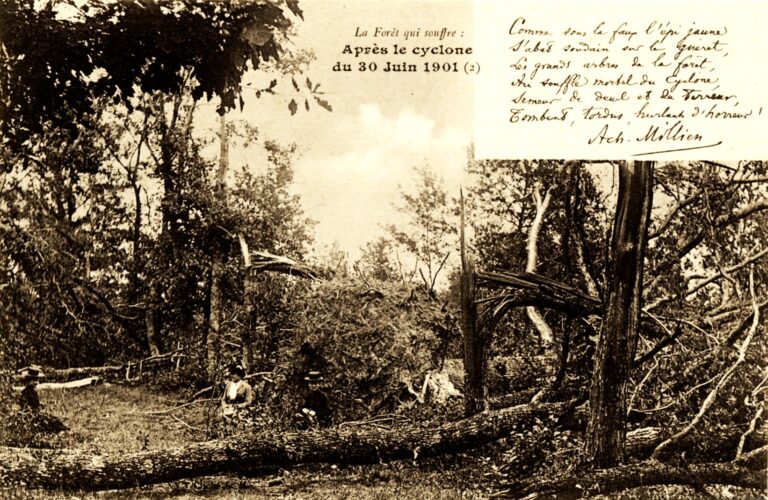 La Forêt qui souffre :
Après le cyclone
du 30 Juin 1901 (2)
Comme sous la faux l'épi jaune
S'abat soudain sur le guéret,
Les grands arbres de la forêt,
Au souffle mortel du Cyclone,
Semeur de deuil et de terreur,
Tombent, tordus, hurlant d'horreur !
Ach. Millien